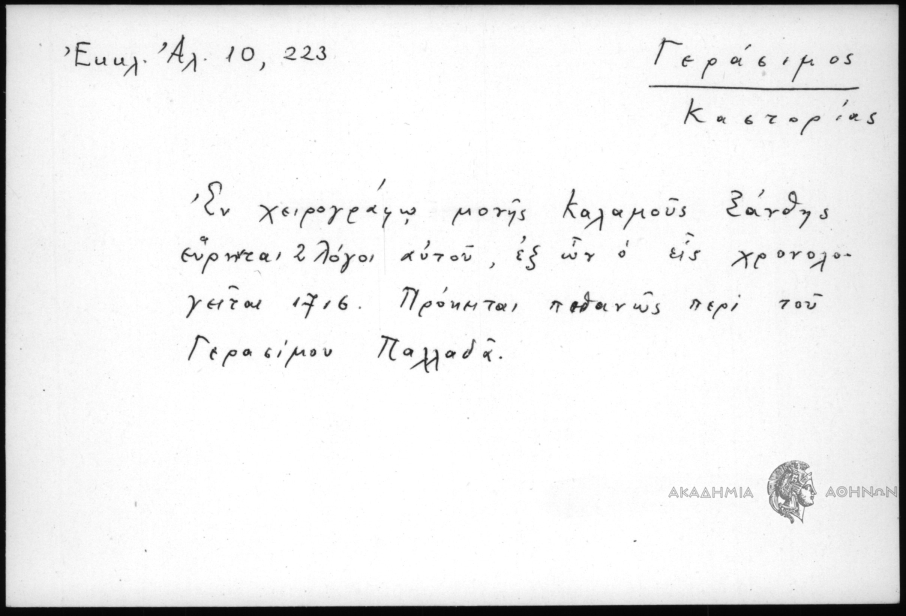 Ἐκκλ. Ἀλ. 10, 223
Γεράσιμος
Καστορίας
Ἐν χειρογράφῳ μονῆς Καλαμοῦς Ξάνθης
εὕρηνται 2 λόγοι αὐτοῦ, ἐξ ὧν ὁ εἷς χρονολο-
γεῖται 1716. Πρόκειται πιθανῶς περὶ τοῦ
Γερασίμου Παλλαδᾶ.
ΑΚΑΔΗΜΙΑ ΑΘΗΝΩΝ